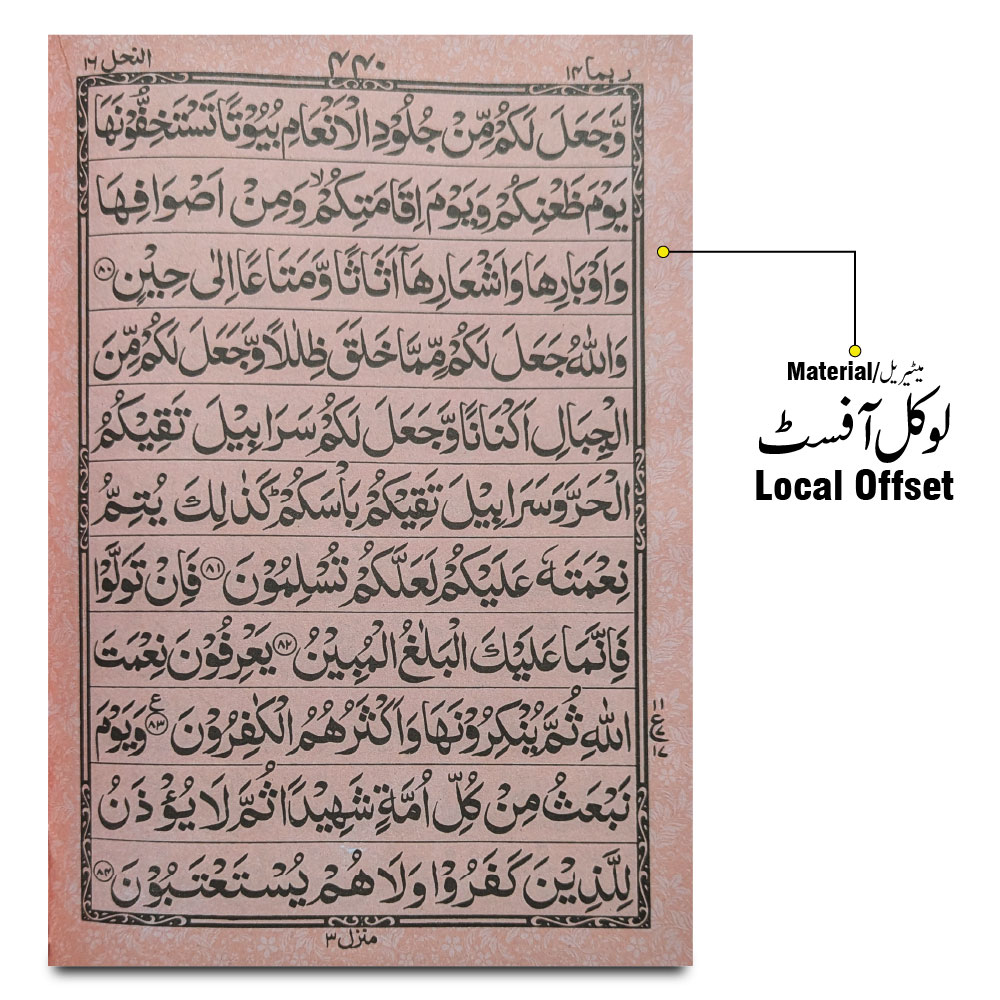 ربما ۱۴
۴۴۰
النحل ۱۶
وَّجَعَلَ لَكُمْ مِّنْ جُلُوْدِ الْاَنْعَامِ بُيُوْتًا تَسْتَخِفُّوْنَهَا
يَوْمَ ظَعْنِكُمْ وَيَوْمَ اِقَامَتِكُمْ ۙ وَمِنْ اَصْوَافِهَا
وَاَوْبَارِهَا وَاَشْعَارِهَآ اَثَاثًا وَّمَتَاعًا اِلٰى حِيْنٍ ۸۰
وَاللّٰهُ جَعَلَ لَكُمْ مِّمَّا خَلَقَ ظِلٰلًا وَّجَعَلَ لَكُمْ مِّنَ
الْجِبَالِ اَكْنَانًا وَّجَعَلَ لَكُمْ سَرَابِيْلَ تَقِيْكُمُ
الْحَرَّ وَسَرَابِيْلَ تَقِيْكُمْ بَاْسَكُمْ ؕ كَذٰلِكَ يُتِمُّ
نِعْمَتَهٗ عَلَيْكُمْ لَعَلَّكُمْ تُسْلِمُوْنَ ۸۱ فَاِنْ تَوَلَّوْا
فَاِنَّمَا عَلَيْكَ الْبَلٰغُ الْمُبِيْنُ ۸۲ يَعْرِفُوْنَ نِعْمَتَ
اللّٰهِ ثُمَّ يُنْكِرُوْنَهَا وَاَكْثَرُهُمُ الْكٰفِرُوْنَ ۸۳ ع وَيَوْمَ
نَبْعَثُ مِنْ كُلِّ اُمَّةٍ شَهِيْدًا ثُمَّ لَا يُؤْذَنُ
لِلَّذِيْنَ كَفَرُوْا وَلَا هُمْ يُسْتَعْتَبُوْنَ ۸۴
منزل ۳
Material/میٹیریل
لوکل آفسٹ
Local Offset